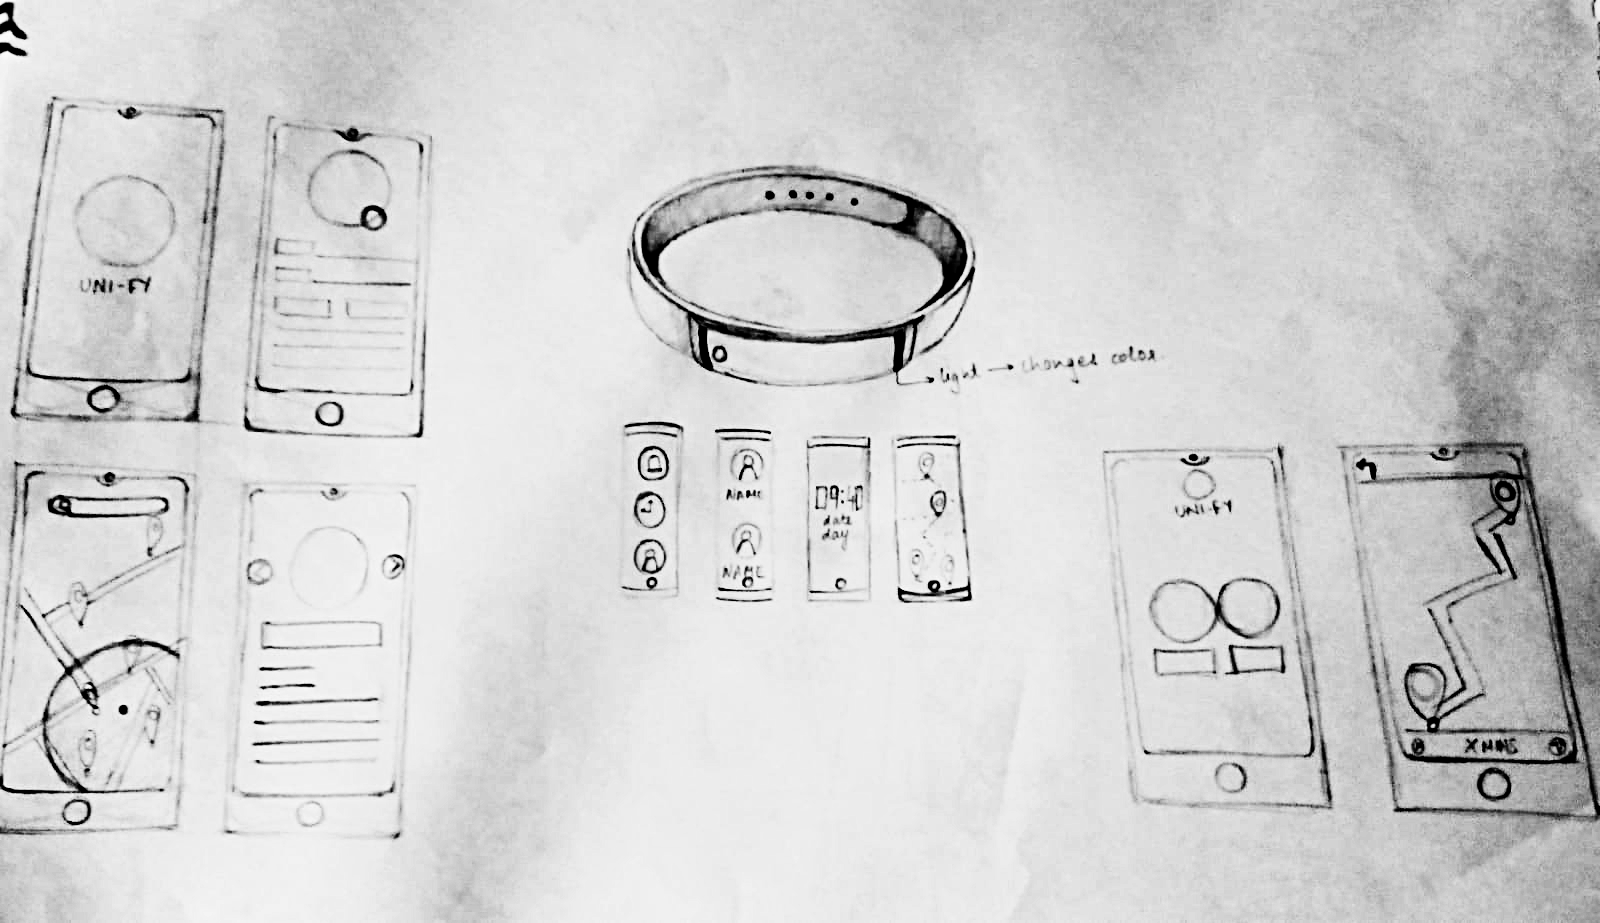 UNI-FY
light → changes color.
NAME
NAME
09:40
date
day
UNI-FY
X MINS